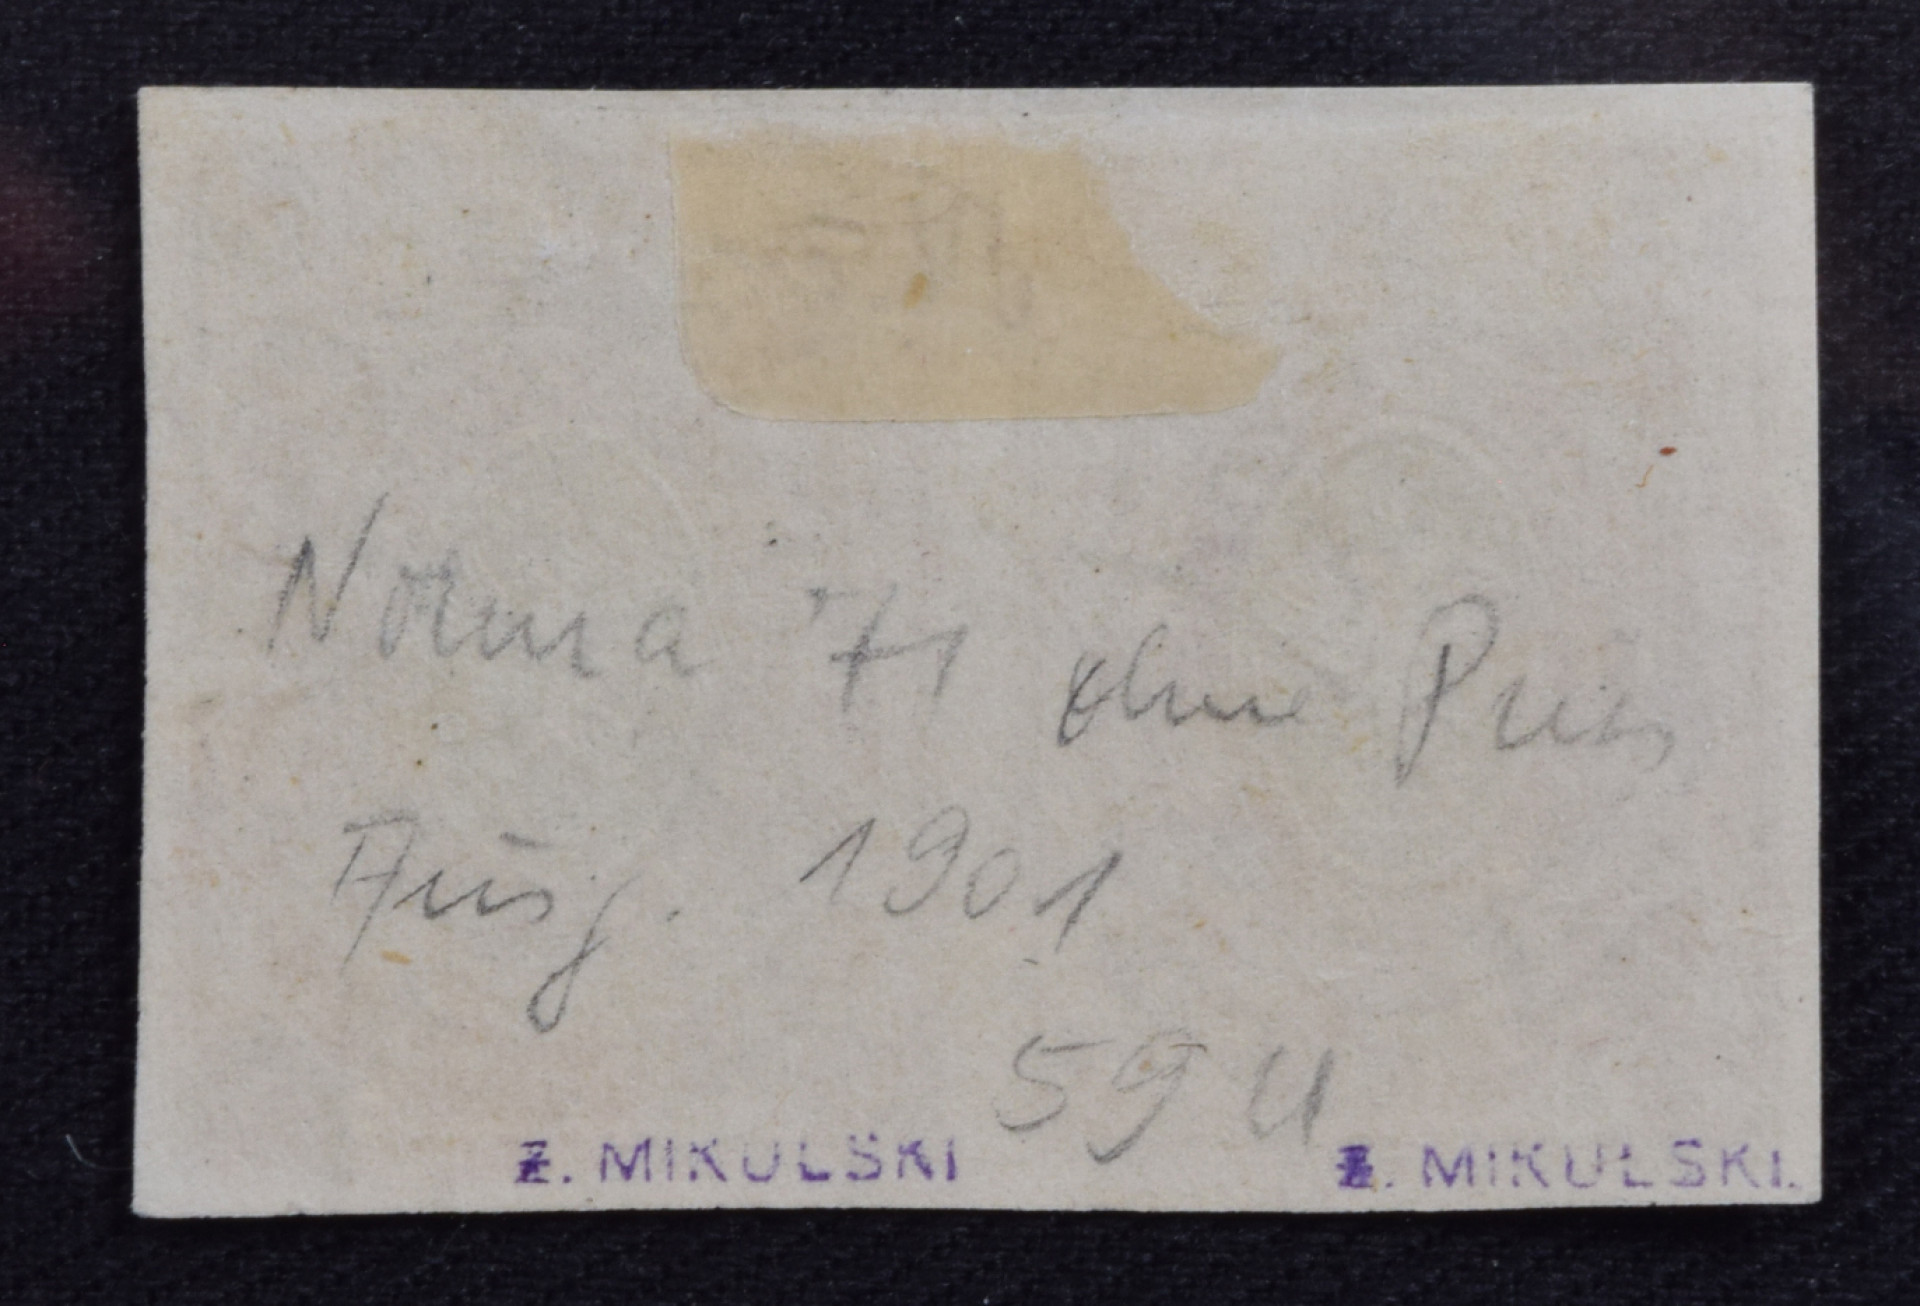 Norma '71 ohne Preis
Ausg. 1901
59 U
Z. MIKULSKI Z. MIKULSKI.